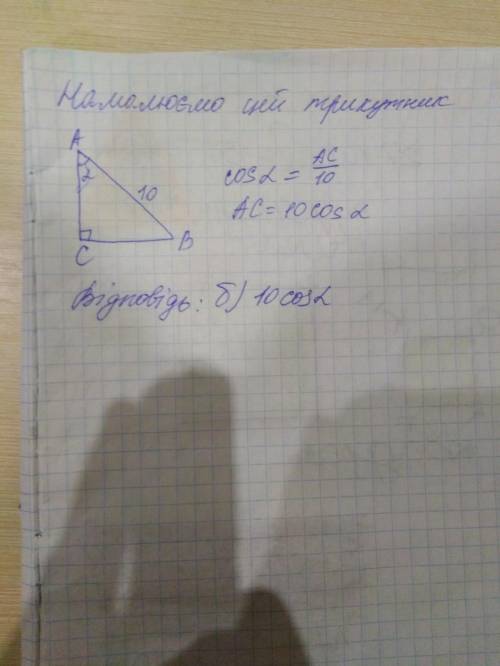 Намалюємо цей трикутник
A
α
10
C
B
cosα = AC/10
AC = 10cosα
Відповідь: б) 10cosα